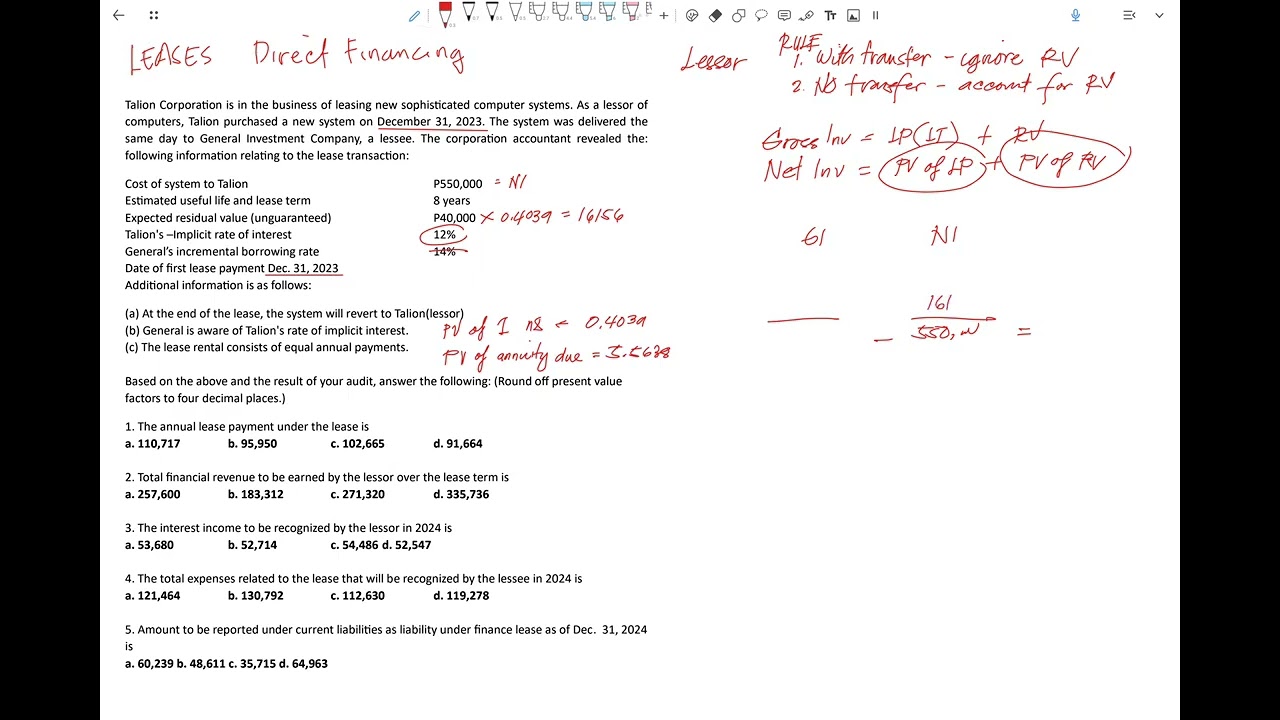 LEASES Direct Financing
Lessor
RULE
1. With transfer – ignore RV
2. No transfer – account for RV
Gross Inv = LP(LT) + RV
Net Inv = PV of LP + PV of RV
Talion Corporation is in the business of leasing new sophisticated computer systems. As a lessor of
computers, Talion purchased a new system on December 31, 2023. The system was delivered the
same day to General Investment Company, a lessee. The corporation accountant revealed the:
following information relating to the lease transaction:
Cost of system to Talion P550,000 = NI
Estimated useful life and lease term 8 years
Expected residual value (unguaranteed) P40,000 × 0.4039 = 16156
Talion's –Implicit rate of interest 12%
General's incremental borrowing rate 14%
Date of first lease payment Dec. 31, 2023
Additional information is as follows:
GI NI
161
– 550, =
(a) At the end of the lease, the system will revert to Talion(lessor)
(b) General is aware of Talion's rate of implicit interest.
(c) The lease rental consists of equal annual payments.
PV of 1 n8 = 0.4039
PV of annuity due = 5.5638
Based on the above and the result of your audit, answer the following: (Round off present value
factors to four decimal places.)
1. The annual lease payment under the lease is
a. 110,717 b. 95,950 c. 102,665 d. 91,664
2. Total financial revenue to be earned by the lessor over the lease term is
a. 257,600 b. 183,312 c. 271,320 d. 335,736
3. The interest income to be recognized by the lessor in 2024 is
a. 53,680 b. 52,714 c. 54,486 d. 52,547
4. The total expenses related to the lease that will be recognized by the lessee in 2024 is
a. 121,464 b. 130,792 c. 112,630 d. 119,278
5. Amount to be reported under current liabilities as liability under finance lease as of Dec. 31, 2024
is
a. 60,239 b. 48,611 c. 35,715 d. 64,963